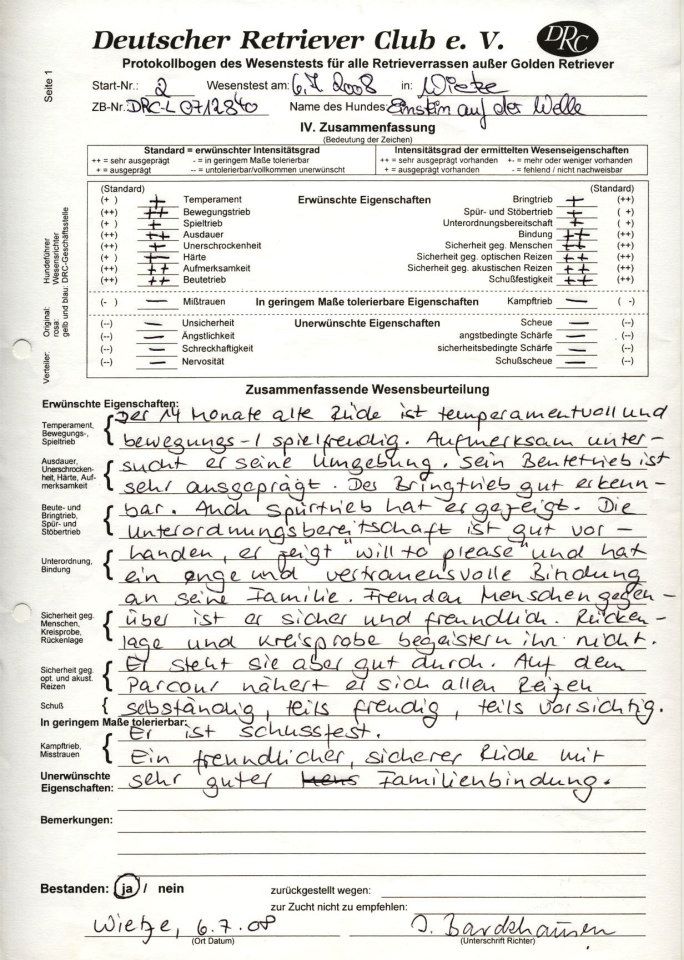 Deutscher Retriever Club e. V.
DRC
Protokollbogen des Wesenstests für alle Retrieverrassen außer Golden Retriever
Seite 1
Start-Nr.: 2 Wesenstest am: 6.7.2008 in: Wietze
ZB-Nr. DRC-L 0712840 Name des Hundes: Einstein auf der Welle
IV. Zusammenfassung
(Bedeutung der Zeichen)
Standard = erwünschter Intensitätsgrad
++ = sehr ausgeprägt - = in geringem Maße tolerierbar
+ = ausgeprägt -- = untolerierbar/vollkommen unerwünscht
Intensitätsgrad der ermittelten Wesenseigenschaften
++ = sehr ausgeprägt vorhanden +- = mehr oder weniger vorhanden
+ = ausgeprägt vorhanden - = fehlend / nicht nachweisbar
(Standard) (Standard)
(+ ) + Temperament Erwünschte Eigenschaften Bringtrieb + (++)
(++) ++ Bewegungstrieb Spür- und Stöbertrieb + ( +)
(+ ) + Spieltrieb Unterordnungsbereitschaft + ( +)
(++) ++ Ausdauer Bindung ++ (++)
(++) + Unerschrockenheit Sicherheit geg. Menschen ++ (++)
(+ ) + Härte Sicherheit geg. optischen Reizen ++ (++)
(++) ++ Aufmerksamkeit Sicherheit geg. akustischen Reizen ++ (++)
(++) ++ Beutetrieb Schußfestigkeit ++ (++)
(- ) — Mißtrauen In geringem Maße tolerierbare Eigenschaften Kampftrieb — ( -)
(--) — Unsicherheit Unerwünschte Eigenschaften Scheue — (--)
(--) — Ängstlichkeit angstbedingte Schärfe — (--)
(--) — Schreckhaftigkeit sicherheitsbedingte Schärfe — (--)
(--) — Nervosität Schußscheue — (--)
Verteiler: Original: Hundeführer
rosa: Wesensrichter
gelb und blau: DRC-Geschäftsstelle
Zusammenfassende Wesensbeurteilung
Erwünschte Eigenschaften:
Temperament,
Bewegungs-,
Spieltrieb
Der 14 Monate alte Rüde ist temperamentvoll und
bewegungs-/ spielfreudig. Aufmerksam unter-
Ausdauer,
Unerschrocken-
heit, Härte, Auf-
merksamkeit
sucht er seine Umgebung. Sein Beutetrieb ist
sehr ausgeprägt. Der Bringtrieb gut erkenn-
Beute- und
Bringtrieb,
Spür- und
Stöbertrieb
bar. Auch Spürtrieb hat er gezeigt. Die
Unterordnungsbereitschaft ist gut vor-
Unterordnung,
Bindung
handen, er zeigt "will to please" und hat
ein enge und vertrauensvolle Bindung
an seine Familie. Fremden Menschen gegen-
Sicherheit geg.
Menschen,
Kreisprobe,
Rückenlage
über ist er sicher und freundlich. Rücken-
lage und Kreisprobe begeistern ihn nicht.
Sicherheit geg.
opt. und akust.
Reizen
Er steht sie aber gut durch. Auf dem
Parcour nähert er sich allen Reizen
Schuß
selbständig, teils freudig, teils vorsichtig.
In geringem Maße tolerierbar:
Er ist schussfest.
Kampftrieb,
Misstrauen
Ein freundlicher, sicherer Rüde mit
Unerwünschte
Eigenschaften:
sehr guter Familienbindung.
Bemerkungen:
Bestanden: ja / nein zurückgestellt wegen:
zur Zucht nicht zu empfehlen:
Wietze, 6.7.08
(Ort Datum) (Unterschrift Richter)